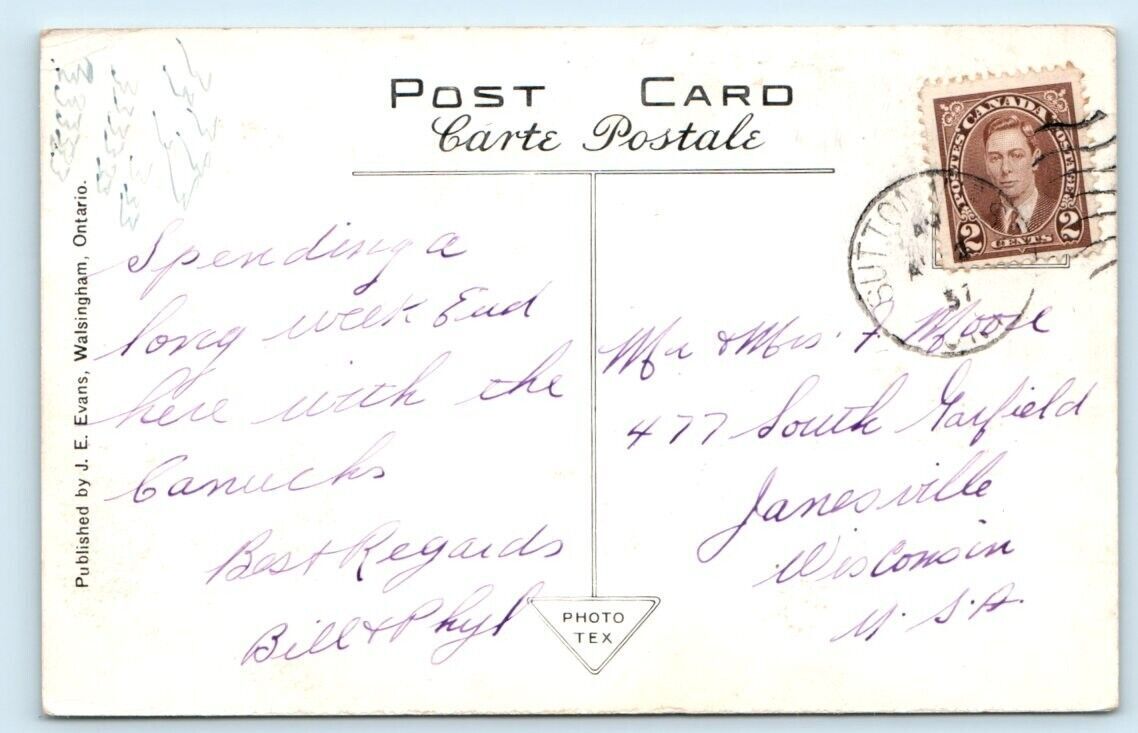 POST CARD
Carte Postale
POSTES CANADA POSTAGE
2 CENTS 2
SUTTON
37
ONT
Published by J. E. Evans, Walsingham, Ontario.
Spending a
long week End
here with the
Canucks
Best Regards
Bill & Phyl
Mr & Mrs. F. Moore
477 South Garfield
Janesville
Wisconsin
U.S.A.
PHOTO
TEX